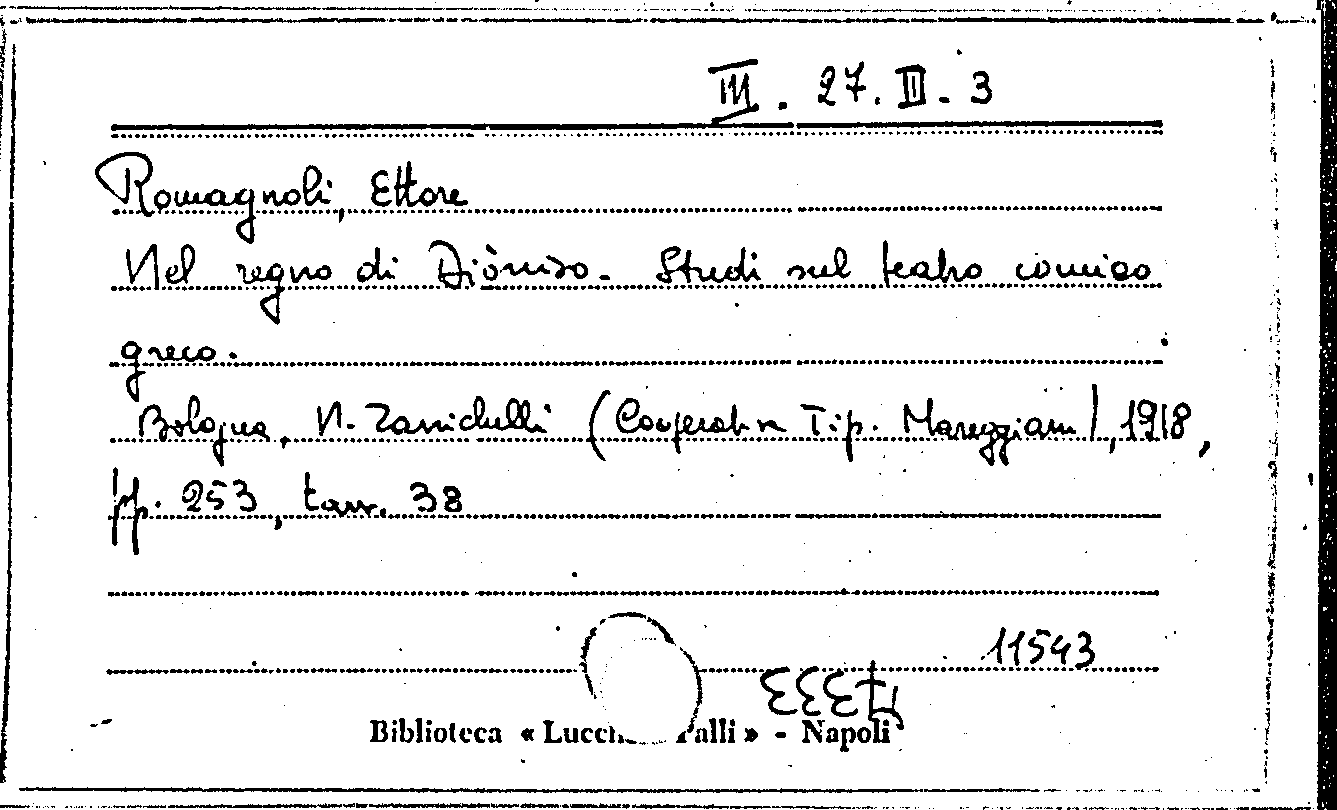 III. 27. III. 3
Romagnoli, Ettore
Nel regno di Diòniso. Studi sul teatro comico
greco.
Bologna, N. Zanichelli (Cooperativa Tip. Mareggiani), 1918,
pp. 253, tav. 38
11543
Biblioteca « Lucch Palli » - Napoli